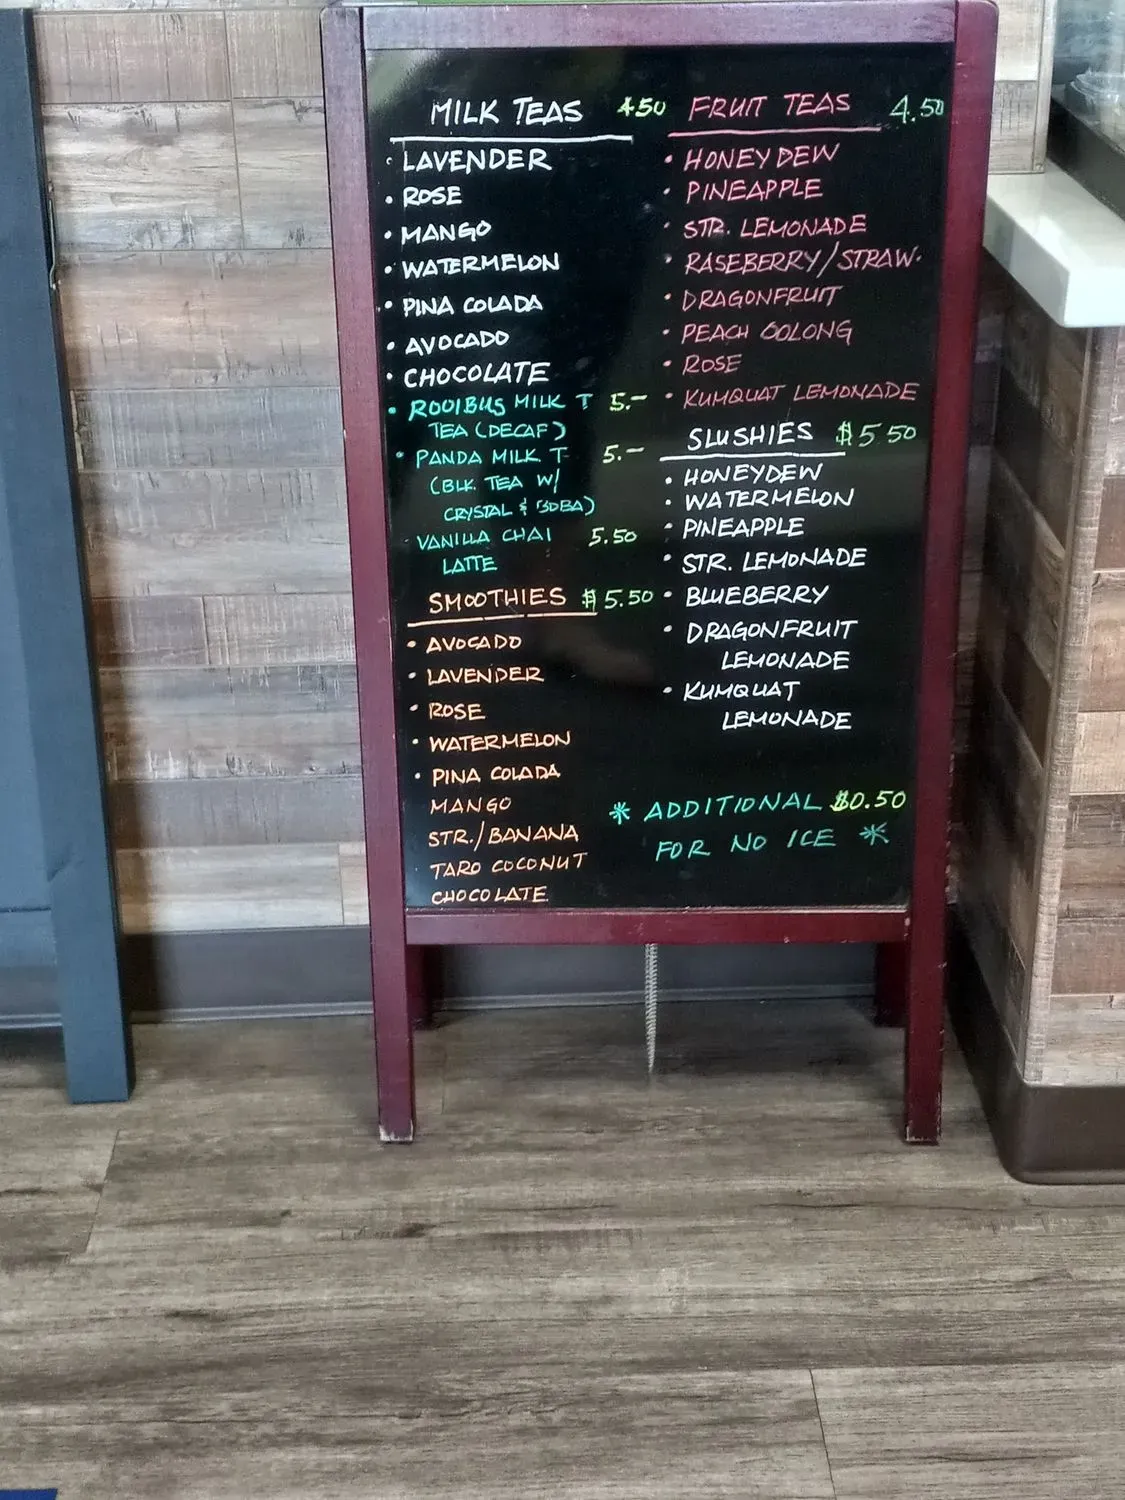 MILK TEAS 4.50
• LAVENDER
• ROSE
• MANGO
• WATERMELON
• PINA COLADA
• AVOCADO
• CHOCOLATE
• ROOIBUS MILK T 5.-
TEA (DECAF)
• PANDA MILK T 5.-
(BLK. TEA W/
CRYSTAL & BOBA)
• VANILLA CHAI 5.50
LATTE
SMOOTHIES $5.50
• AVOCADO
• LAVENDER
• ROSE
• WATERMELON
• PINA COLADA
MANGO
STR./BANANA
TARO COCONUT
CHOCOLATE
FRUIT TEAS 4.50
• HONEYDEW
• PINEAPPLE
• STR. LEMONADE
• RASEBERRY/STRAW.
• DRAGONFRUIT
• PEACH OOLONG
• ROSE
• KUMQUAT LEMONADE
SLUSHIES $5 50
• HONEYDEW
• WATERMELON
• PINEAPPLE
• STR. LEMONADE
• BLUEBERRY
• DRAGONFRUIT
LEMONADE
• KUMQUAT
LEMONADE
* ADDITIONAL $0.50
FOR NO ICE *